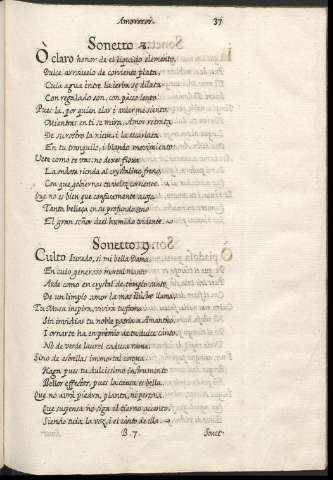 Amorosos.
37
Sonetto 2.
Ò claro honor de el liquido elemento,
Dulce arroiuelo de corriente plata,
Cuia agua entre la ierba se dilata
Con regalado son, con passo lento:
Pues la, por quien elar i arder me siento
Mientras en ti se mira, Amor retrata
De su rostro la nieue, i la escarlata
En tu tranquilo, i blando movimiento
Vete como te vas; no dexes floxa
La ondosa rienda al crystalino freno
Con que gobiernas tu veloz corriente.
Que no es bien que confusamente acoja
Tanta belleça en su profundo seno
El gran señor de el humido tridente.
Sonetto 9.
Culto Iurado, si mi bella Dama,
En cuio generoso mortal manto
Arde como en crystal de templo santo
De un limpio amor la mas illustre llama,
Tu Musa inspira, vivira tu fama
Sin invidiar tu noble patria a Mantho,
I ornarte ha en premio de tu dulce canto,
No de verde laurel caduca rama,
Sino de estrellas immortal corona.
Haga, pues tu dulcissimo instrumento
Bellos effectos, pues la causa es bella.
Que no avrà piedra, planta, ni persona,
Que suspensa no siga el tierno accento,
Siendo tuia la voz, i el canto de ella
B. 7.
Sonet